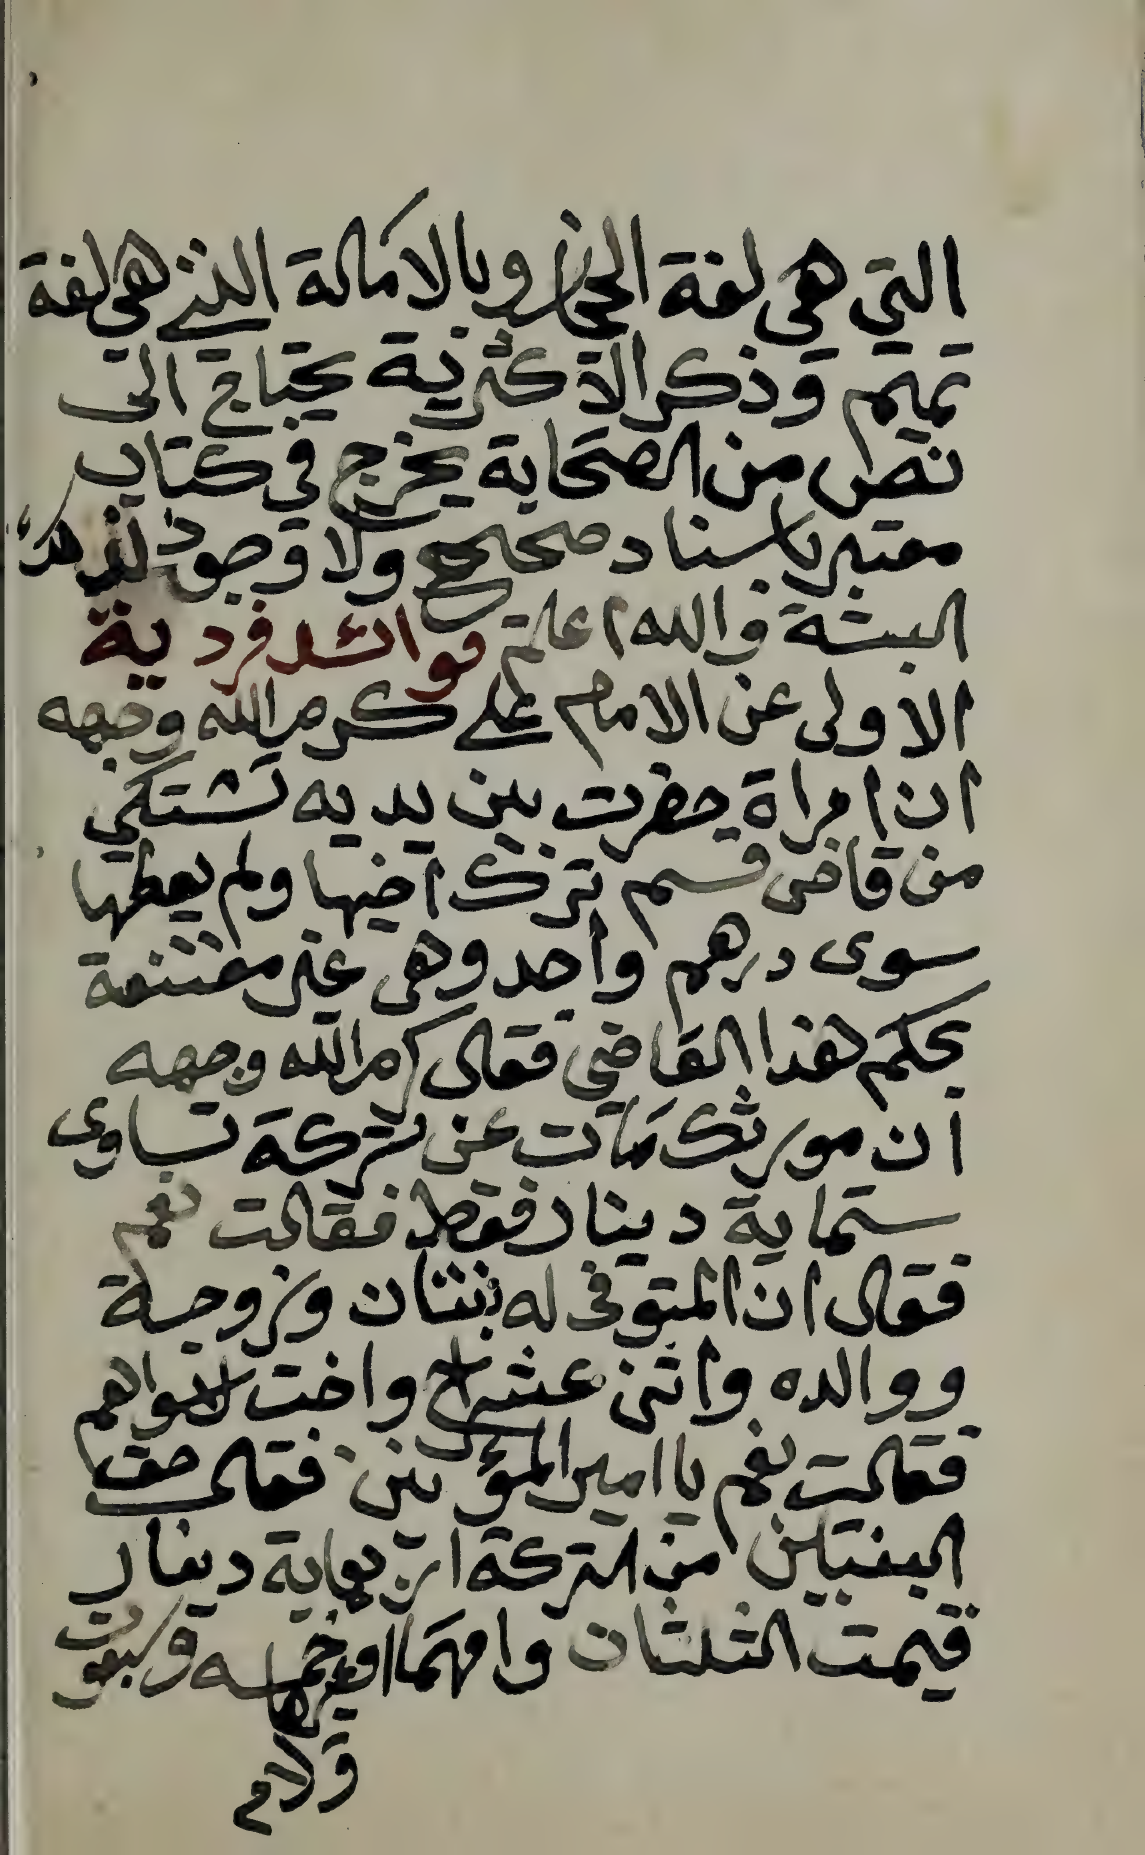 التي هي لغة الحجاز وبالامالة التي هي لغة
تميم وذكر الاكثرية يحتاج الى
نص من الصحابة يخرج في كتاب
معتبر باسناد صحيح ولا وجود لهذا
البتة والله اعلم فوائد فردية
الاولى عن الامام علي كرم الله وجهه
ان امراة حضرت بين يديه تشتكي
من قاضى قسم ترك اخيها ولم يعطها
سوى درهم واحد وهي غير مقتنعة
بحكم هذا القاضي فقال كرم الله وجهه
ان مورثك مات عن تركة تساوى
ستماية دينار فقط فقالت نعم
فقال ان المتوفى له بنتان وزوجة
ووالده واثنى عشر اخ واخت سواهم
فقالت نعم يا امير المؤمنين فقال حق
البنتين من التركة اربعماية دينار
قيمت الثلثان وامهما خمسه وسبعون
ولام